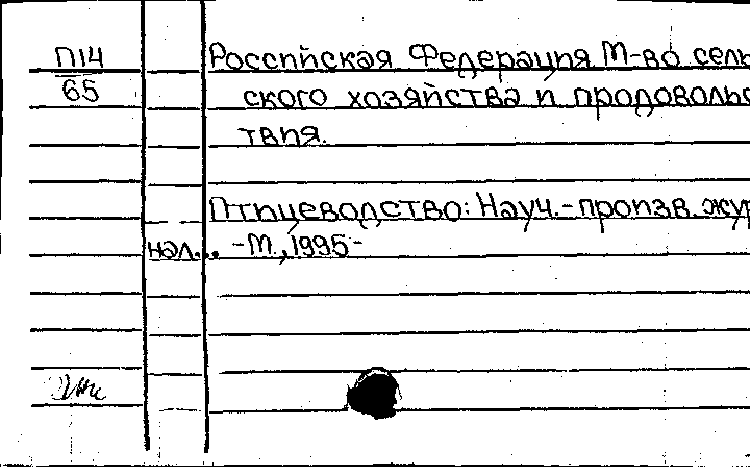 П14
65
Российская Федерация М-во сель
ского хозяйства и продоволь
твия.
Птицеводство: Науч.-произв. жур
нал... -М., 1995-